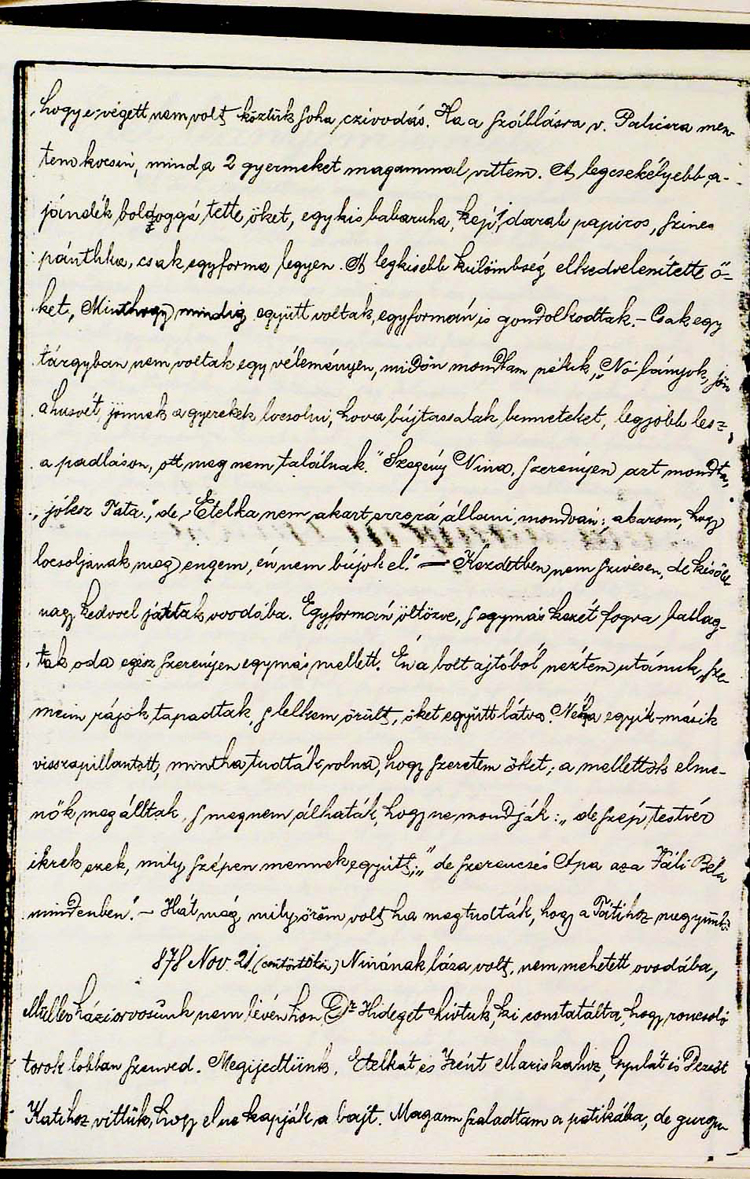 hogy e végett nem volt köztük soha czivodás. Ha a szállásra v. Palicsra men-
tem kocsin, mind a 2 gyermeket magammal vittem. A legcsekélyebb a-
jándék boldoggá tette őket, egy kis babaruha, kép, 1 darab papiros, szines
pánthka, csak egyforma legyen. A legkisebb külömbség elkedvelenitette ő-
ket, Minthogy mindig együtt voltak, egyformán is gondolkodtak. – Csak egy
tárgyban nem voltak egy véleményen, midőn mondtam nékik, „Nó lányok, jön
a husvét, jönnek a gyerekek locsolni, hova bújtassalak benneteket, legjobb lesz
a padláson, ott meg nem találnak." Szegény Nina, szerényen azt mondta,
„jó lesz Tata", de Etelka nem akart erre rá állani, mondván: akarom, hogy
locsoljanak meg engem, én nem bújok el." — Kezdetben nem szivesen, de később
nagy kedvvel jártak ovodába. Egyformán öltözve, s egymás kezét fogva ballag-
tak oda egész szerényen egymás mellett. Én a bolt ajtóból néztem utánuk, sze-
meim rájok tapadtak, s lelkem örült, őket együtt látva. Néha egyik-másik
visszapillantott, mintha tudták volna, hogy szeretem őket; a mellettök elme-
nők megálltak, s meg nem álhaták, hogy ne mondják: „de szép testvér
ikrek ezek, mily szépen mennek együtt;" „de szerencsés Apa az a Váli Béla
mindenben". – Hát még mily öröm volt ha megtudták, hogy a Tátihoz megyünk.
878 Nov. 21 (csütörtökön) Ninának láza volt, nem mehetett ovodába,
Müller háziorvosunk nem lévén hon Dr Hideget hívtuk, ki constatálta, hogy roncsoló
torok lobban szenved. Megijedtünk, Etelkát és Irént Mariskához, Gyulát és Dezsőt
Katihoz vittük, hogy el ne kapják a bajt. Magam szaladtam a patikába, de